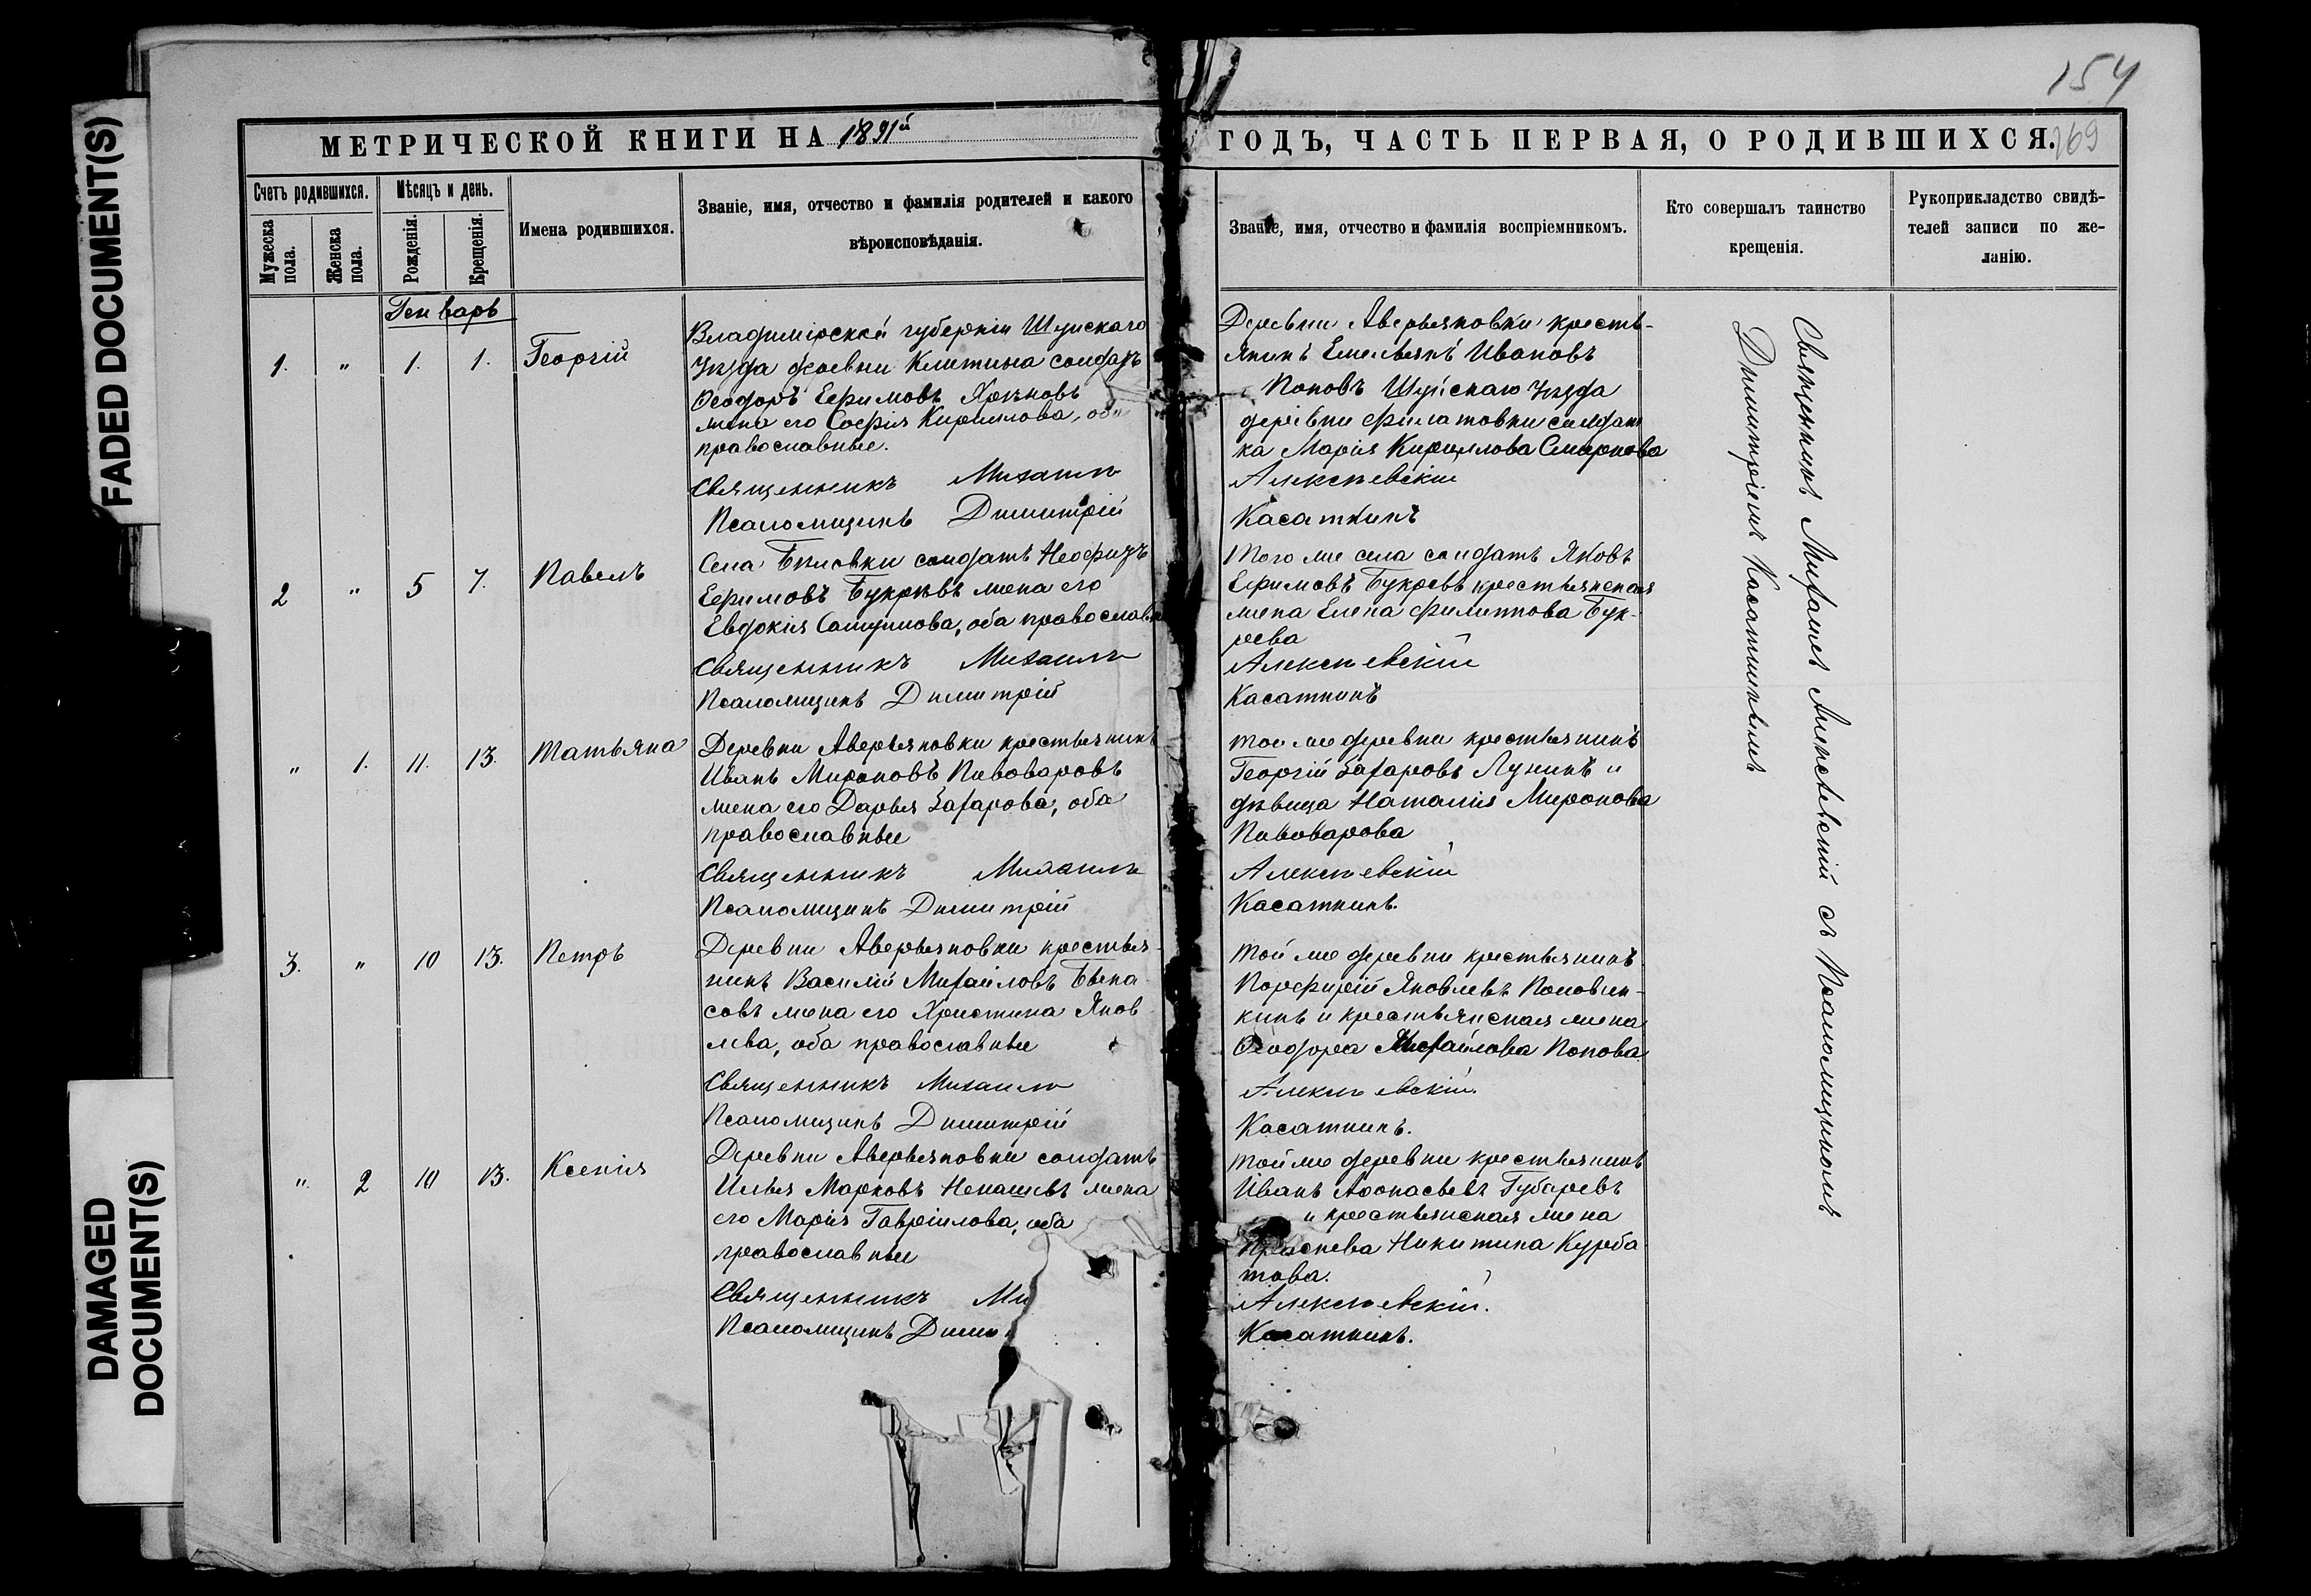 FADED DOCUMENT(S)
DAMAGED
DOCUMENT(S)
154
169
МЕТРИЧЕСКОЙ КНИГИ НА 1891й
ГОДЪ, ЧАСТЬ ПЕРВАЯ, О РОДИВШИХСЯ.
Счетъ родившихся.
Мужеска пола.
Женска пола.
Мѣсяцъ и день.
Рожденія.
Крещенія.
Имена родившихся.
Званіе, имя, отчество и фамилія родителей и какого
вѣроисповѣданія.
Званіе, имя, отчество и фамилія воспріемникомъ.
Кто совершалъ таинство
крещенія.
Рукоприкладство свидѣ-
телей записи по же-
ланію.
Генварь
1. " 1. 1. Георгій
Владимірской губерніи Шуйскаго
Уѣзда деревни Клитина солдатъ
Ѳеодоръ Ефимовъ
жена его Софія Кирилова, оба
православные.
Священникъ Михаилъ
Псаломщикъ Димитрій
Деревни Аверьяновки кресть-
янинъ Емельянъ Ивановъ
Поповъ Шуйскаго Уѣзда
деревни Филатовки солдат
ка Марія Кириллова Смирнова
Алексѣевскій
Касаткинъ
2 " 5 7. Павелъ
Села Бѣловки солдатъ Неофидъ
Ефимовъ Букрѣвъ жена его
Евдокія Самуилова, оба православн
Священникъ Михаилъ
Псаломщикъ Димитрій
Того же села солдатъ Яковъ
Ефимовъ Букревъ крестьянская
жена Елена Филиппова Бук-
рева
Алексѣевскій
Касаткинъ
" 1. 11. 13. Татьяна
Деревни Аверьяновки крестьянинъ
Иванъ Мироновъ Пивоваровъ
жена его Дарья Захарова, оба
православные
Священникъ Михаилъ
Псаломщикъ Димитрій
тое же деревни крестьянинъ
Георгій Захаровъ Лунинъ и
дѣвица Наталія Миронова
Пивоварова
Алексѣевскій
Касаткинъ.
3. " 10 13. Петръ
Деревни Аверьяновки крестья-
нинъ Василій Михайловъ
совъ жена его Христина Яков
лева, оба православные
Священникъ Михаилъ
Псаломщикъ Димитрій
той же деревни крестьянинъ
Порфирій Яковлевъ Половин-
кинъ и крестьянская жена
Ѳеодора Михайлова Попова
Алексѣевскій.
Касаткинъ.
" 2 10 13. Ксенія
Деревни Аверьяновки солдатъ
Илья Марковъ Ненашевъ жена
его Марія Гавріилова, оба
православные
Священникъ Ми
Псаломщикъ Дими
той же деревни крестьянинъ
Иванъ Аѳонасьевъ Губаревъ
и крестьянская жена
Праскева Никитина Курба
това.
Алексѣевскій.
Касаткинъ.
Священникъ Михаилъ Алексѣевскій съ Псаломщикомъ
Димитріемъ Касаткинымъ